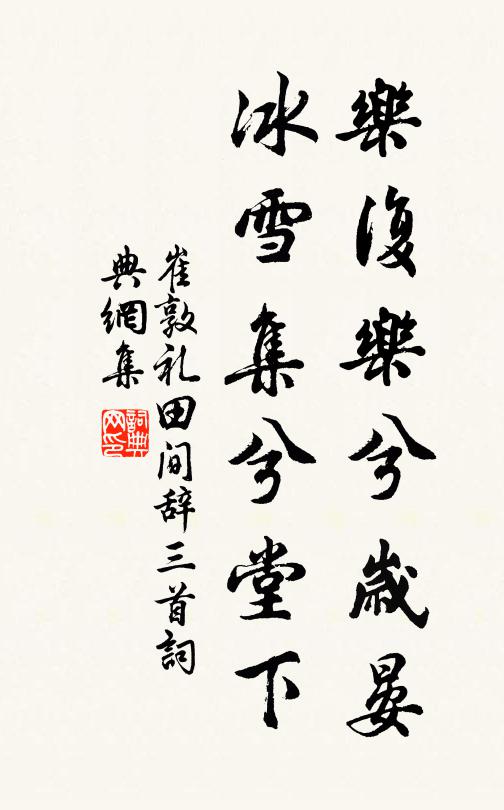 樂復樂兮歲晏
冰雪集兮堂下
崔敦礼田间辞三首詞
典網集
詞典网印